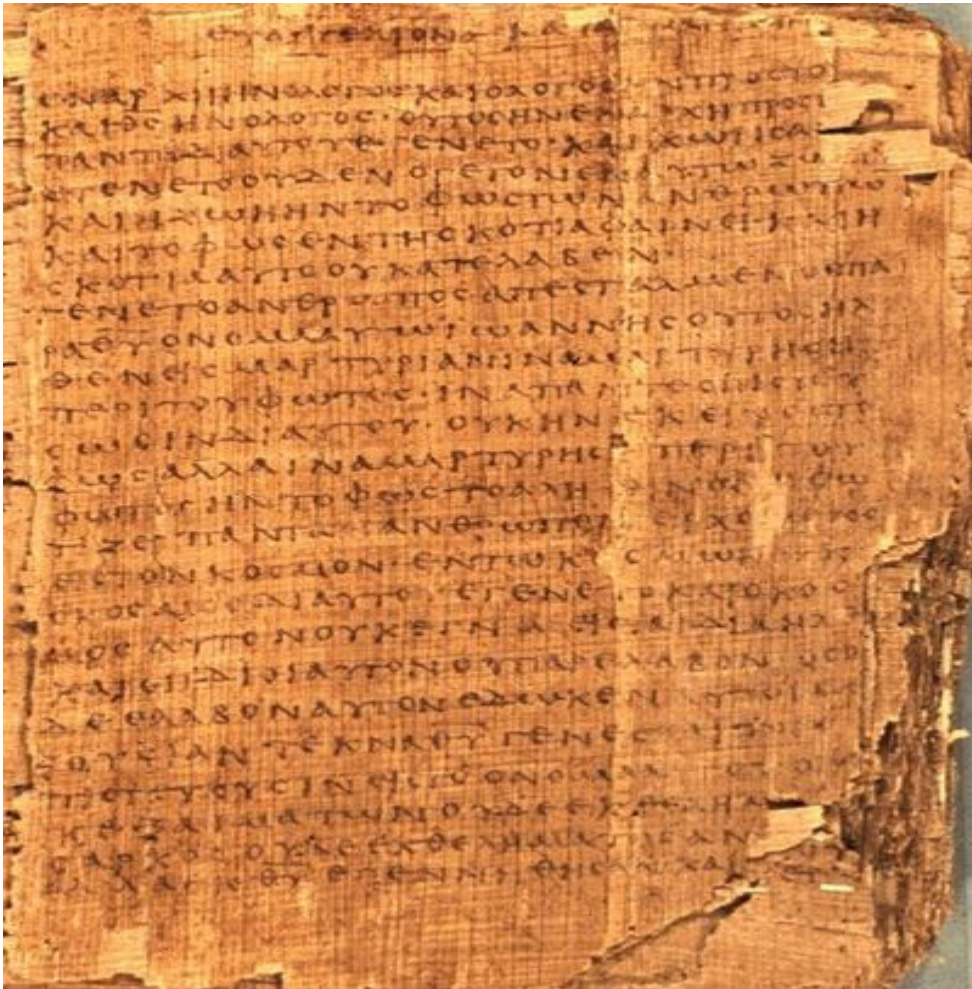 ΕΥΑΓΓΕΛΙΟΝ ΚΑΤΑ
ΕΝ ΑΡΧΗ ΗΝ Ο ΛΟΓΟΣ ΚΑΙ Ο ΛΟΓΟΣ ΗΝ ΠΡΟΣ ΤΟ
ΚΑΙ ΘΣ ΗΝ Ο ΛΟΓΟΣ · ΟΥΤΟΣ ΗΝ ΕΝ ΑΡΧΗ ΠΡΟΣ Τ
ΠΑΝΤΑ ΔΙ ΑΥΤΟΥ ΕΓΕΝΕΤΟ · ΚΑΙ ΧΩΡΙΣ Α
ΕΓΕΝΕΤΟ ΟΥΔΕΝ Ο ΓΕΓΟΝΕΝ ΕΝ ΑΥΤΩ ΖΩ
ΚΑΙ Η ΖΩΗ ΗΝ ΤΟ ΦΩΣ ΤΩΝ ΑΝΘΡΩΠΩ
ΚΑΙ ΤΟ ΦΩΣ ΕΝ ΤΗ ΣΚΟΤΙΑ ΦΑΙΝΕΙ · ΚΑΙ Η
ΣΚΟΤΙΑ ΑΥΤΟ ΟΥ ΚΑΤΕΛΑΒΕΝ ·
ΕΓΕΝΕΤΟ ΑΝΘΡΩΠΟΣ ΑΠΕΣΤΑΛΜΕΝΟΣ ΠΑ
ΡΑ ΘΥ ΟΝΟΜΑ ΑΥΤΩ ΪΩΑΝΝΗΣ ΟΥΤΟΣ ΗΛ
ΘΕΝ ΕΙΣ ΜΑΡΤΥΡΙΑΝ ΙΝΑ ΜΑΡΤΥΡΗΣΗ
ΠΕΡΙ ΤΟΥ ΦΩΤΟΣ · ΙΝΑ ΠΑΝΤΕΣ ΠΙΣΤΕΥ
ΣΩΣΙΝ ΔΙ ΑΥΤΟΥ · ΟΥΚ ΗΝ ΕΚΕΙΝΟΣ ΤΟ
ΦΩΣ ΑΛΛΑ ΙΝΑ ΜΑΡΤΥΡΗΣΗ ΠΕΡΙ ΤΟΥ
ΦΩΤΟΣ ΗΝ ΤΟ ΦΩΣ ΤΟ ΑΛΗΘΙΝΟΝ Ο ΦΩ
ΤΙΖΕΙ ΠΑΝΤΑ ΑΝΘΡΩΠΟΝ
ΕΙΣ ΤΟΝ ΚΟΣΜΟΝ · ΕΝ ΤΩ ΚΟΣΜΩ ΗΝ
ΚΟΣΜΟΣ ΔΙ ΑΥΤΟΥ ΕΓΕΝΕΤΟ ΚΑΙ Ο ΚΟΣ
ΜΟΣ ΑΥΤΟΝ ΟΥΚ ΕΓΝΩ ΕΙΣ ΤΑ ΙΔΙΑ ΗΛ
ΚΑΙ ΟΙ ΙΔΙΟΙ ΑΥΤΟΝ ΟΥ ΠΑΡΕΛΑΒΟΝ ΟΣΟΙ
ΔΕ ΕΛΑΒΟΝ ΑΥΤΟΝ ΕΔΩΚΕΝ ΑΥΤΟΙΣ ΕΞ
ΟΥΣΙΑΝ ΤΕΚΝΑ ΘΥ ΓΕΝΕΣΘΑΙ ΤΟΙΣ
ΠΙΣΤΕΥΟΥΣΙΝ ΕΙΣ ΤΟ ΟΝΟΜΑ
Κ ΕΞ ΑΙΜΑΤΩΝ ΟΥΔΕ ΕΚ ΘΕΛΗΜΑ
ΣΑΡΚΟΣ ΟΥΔΕ ΕΚ ΘΕΛΗΜΑΤΟΣ ΑΝ
ΑΛΛΑ ΕΚ ΘΥ ΕΓΕΝΝΗΘΗΣΑΝ ΚΑΙ